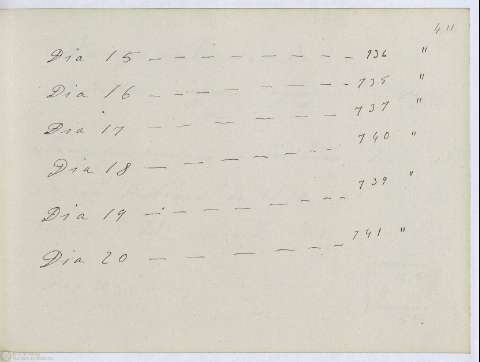 411
Dia 15 — — — — — — — — 736 "
Dia 16 — — — — — — — — 735 "
Dia 17 — — — — — — — 737 "
Dia 18 — — — — — — — — 740 "
Dia 19 — — — — — — — 739 "
Dia 20 — — — — — — 741 "